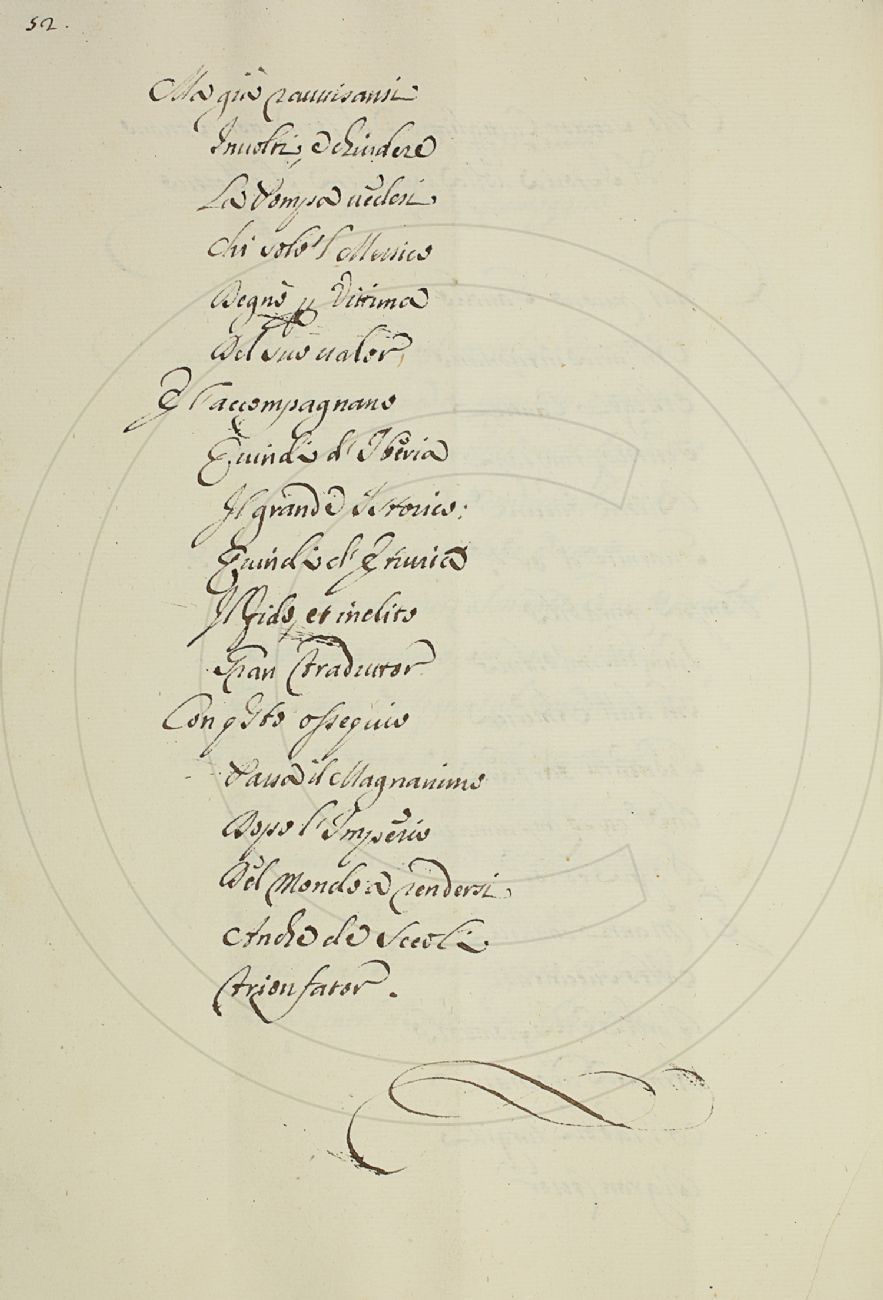 52.
Ma già rauuisansi
Inuolti, e chiudere
La Pompa uedesi
Chi solo 'l Messico
Degnò p Vittima
Del suo ualor,
E l'accompagnano
Quindi d'Iberia
Il grande Istorico;
Quindi d'Etruria
Il Fido, et inclito
Gran Tradutor
Con qsto ossequio
Passa il Magnanimo
Dopo l'Imperio
Del Mondo a rendersi
Anche de Secoli
Trionfator.